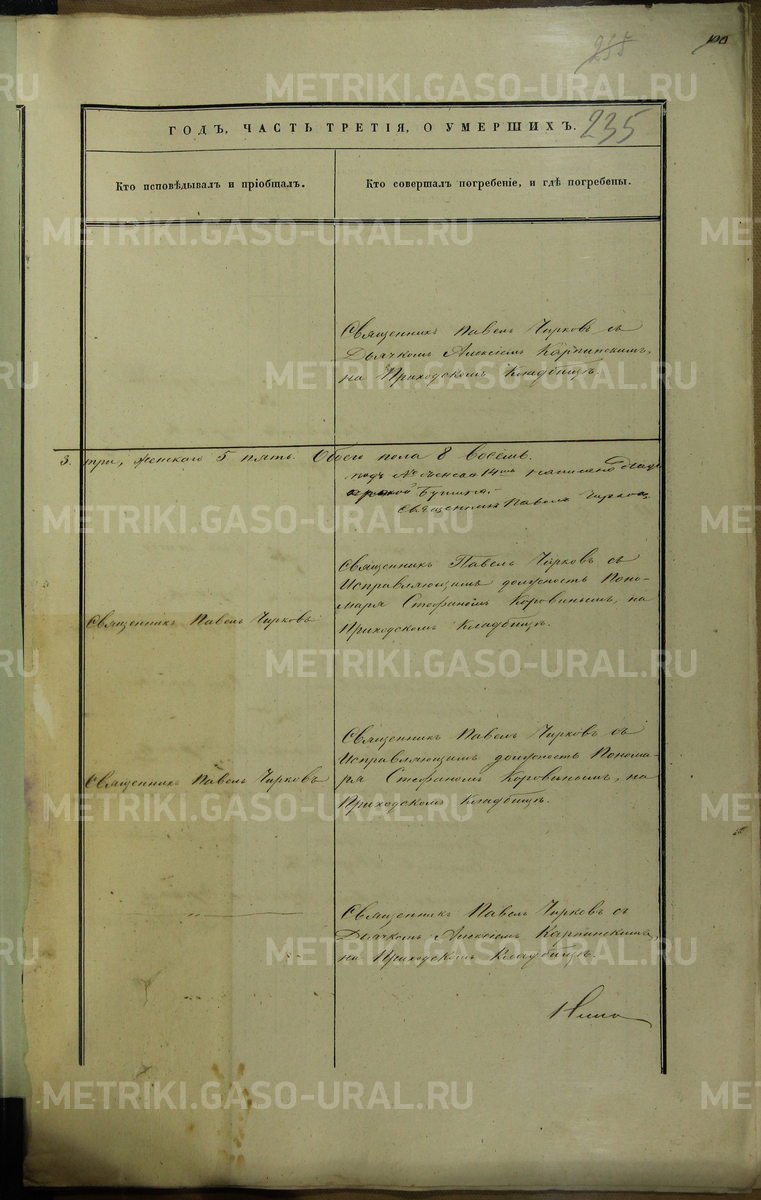 235
ГОДЪ, ЧАСТЬ ТРЕТІЯ, О УМЕРШИХЪ.
235
Кто исповѣдывалъ и пріобщалъ.
Кто совершалъ погребеніе, и гдѣ погребены.
Священникъ Павелъ Чирковъ съ
Дьячкомъ Алексіемъ Карпинскимъ,
на Приходскомъ Кладбищѣ.
3. три, женскаго 5 пять. Обоего пола 8 восемь.
подъ № женска 14мъ написано
Священникъ Павелъ Чирковъ
Священникъ Павелъ Чирковъ
Священникъ Павелъ Чирковъ съ
Исправляющимъ должность Поно-
маря Стефаномъ Коровинымъ, на
Приходскомъ Кладбищѣ.
Священникъ Павелъ Чирковъ
Священникъ Павелъ Чирковъ съ
Исправляющимъ должность Понома-
ря Стефаномъ Коровинымъ, на
Приходскомъ Кладбищѣ.
Священникъ Павелъ Чирковъ съ
Дьячкомъ Алексіемъ Карпинскимъ,
на Приходскомъ Кладбищѣ.
METRIKI.GASO-URAL.RU